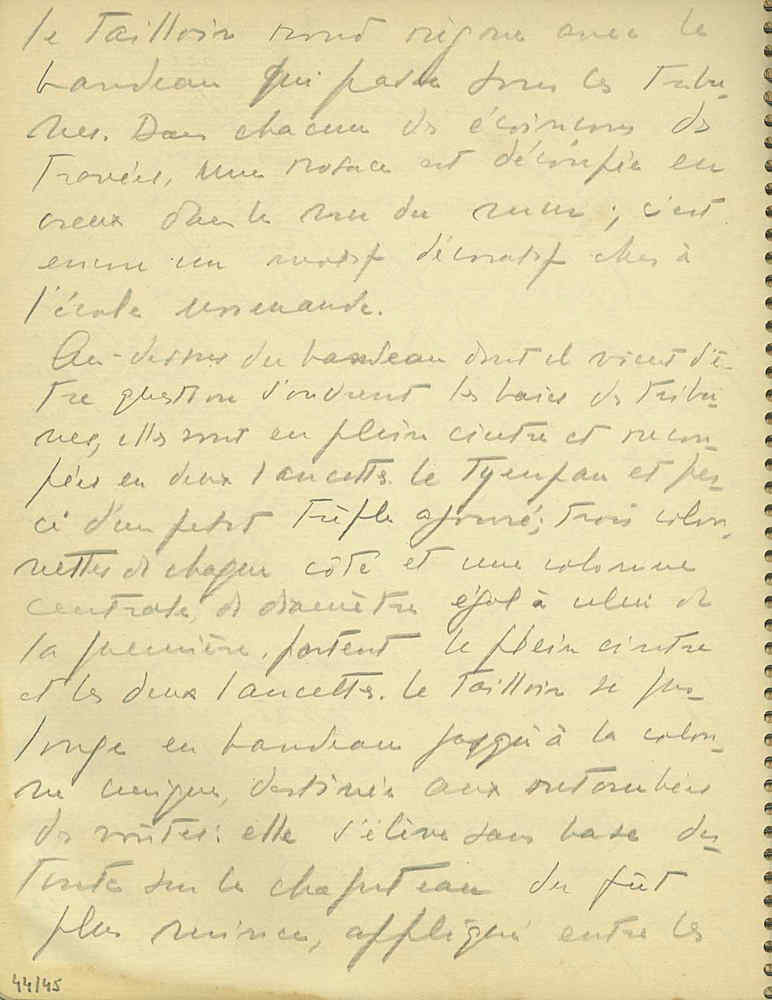 le tailloir rond règne avec le
bandeau qui passe sous les tribu-
nes. Dans chacun des écoinçons des
travées, une rosace est découpée en
creux dans le nu du mur ; c'est
encore un motif décoratif cher à
l'école normande.
Au-dessus du bandeau dont il vient d'ê-
tre question s'ouvrent les baies des tribu-
nes, elles sont en plein cintre et recou-
pées en deux lancettes. Le tympan est per-
cé d'un petit trèfle ajouré ; trois colon-
nettes de chaque côté et une colonne
centrale, de diamètre égal à celui de
la première, portent le plein cintre
et les deux lancettes. Le tailloir se pro-
longe en bandeau jusqu'à la colon-
ne unique, destinée aux retombées
des voûtes : elle s'élève sans base
sur le chapiteau du fût
plus mince, appliqué entre les
44/45